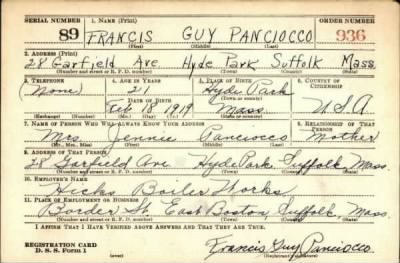 SERIAL NUMBER 1. NAME (Print) ORDER NUMBER
89 FRANCIS GUY PANCIOCCO 936
(First) (Middle) (Last)
2. ADDRESS (Print)
28 Garfield Ave Hyde Park Suffolk Mass.
(Number and street or R. F. D. number) (Town) (County) (State)
3. TELEPHONE 4. AGE IN YEARS 5. PLACE OF BIRTH 6. COUNTRY OF CITIZENSHIP
(None) 21 Hyde Park
DATE OF BIRTH (Town or county)
Feb 18 1919 Mass. U.S.A
(Exchange) (Number) (Mo.) (Day) (Yr.) (State or country)
7. NAME OF PERSON WHO WILL ALWAYS KNOW YOUR ADDRESS 8. RELATIONSHIP OF THAT PERSON
Mrs. Jennie Panciocco Mother
(Mr., Mrs., Miss) (First) (Middle) (Last)
9. ADDRESS OF THAT PERSON
28 Garfield Ave Hyde Park Suffolk Mass.
(Number and street or R. F. D. number) (Town) (County) (State)
10. EMPLOYER'S NAME
Hicks Boiler Works
11. PLACE OF EMPLOYMENT OR BUSINESS
Border St. East Boston, Suffolk Mass.
(Number and street or R. F. D. number) (Town) (County) (State)
I AFFIRM THAT I HAVE VERIFIED ABOVE ANSWERS AND THAT THEY ARE TRUE.
REGISTRATION CARD
D. S. S. Form 1
Francis Guy Panciocco
(Registrant's signature)